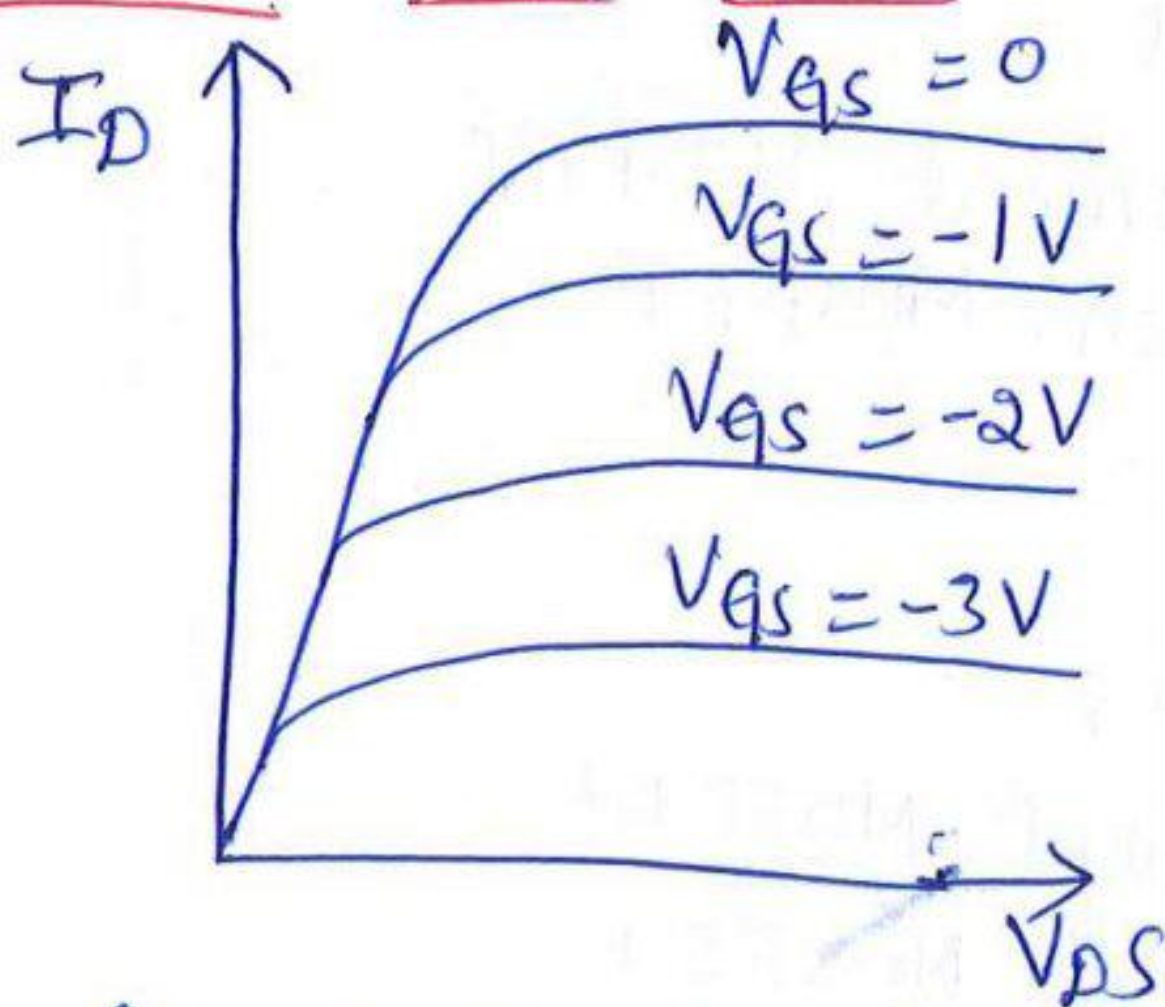 I_D
V_GS = 0
V_GS = -1V
V_GS = -2V
V_GS = -3V
V_DS